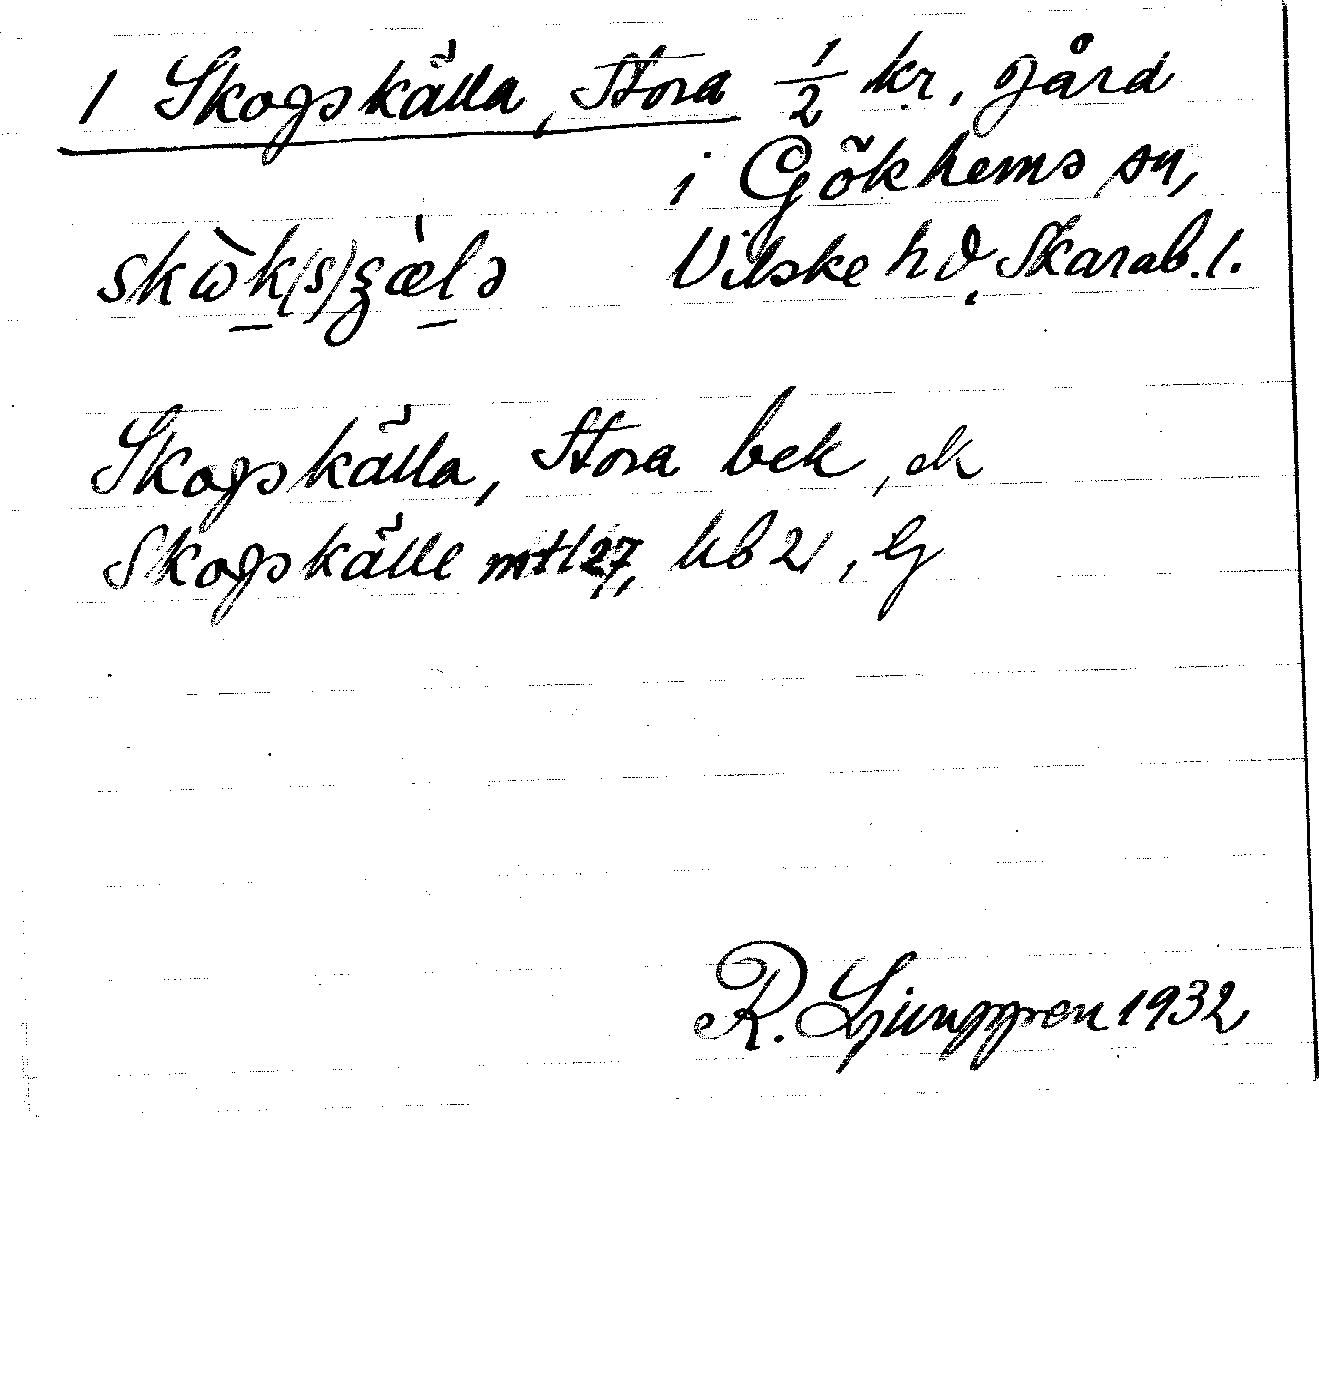 1 Skogskälla, Stora ½ kr. gård
i Gökhems sn,
skὼk(s)ʒæ̀lə Vilske hd. Skarab. l.
Skogskälla, Stora bek, ek
Skogskälle mtl 27, kb 21, G
R. Ljunggren 1932